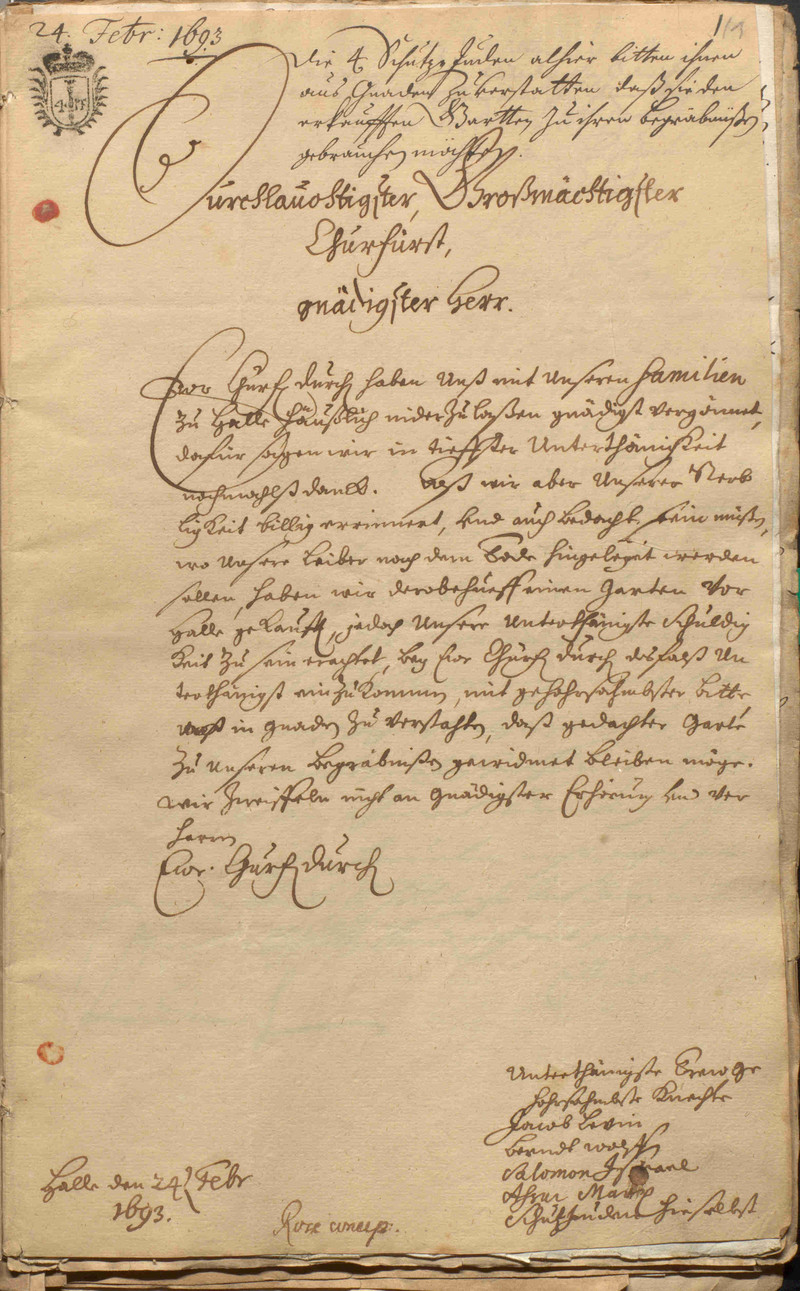 24. Febr: 1693
1
die 4 Schutz Juden alhier bitten ihnen
aus Gnaden zu verstatten daß sie den
erkaufften Gartten zu ihren begräbnüßen
gebrauchen möchten.
Durchlauchtigster, Großmächtigster
Churfürst,
gnädigster Herr.
Ewr Churf durch haben Unß mit Unseren Familien
zu Halle häußlich nider zu laßen gnädigst vergönnet,
dafür sagen wir in tieffster Unterthänigkeit
nochmahlß danck. Daß wir aber Unserer Sterb
ligkeit billig errinnert, und auch bedacht sein müßen,
wo Unsere Leiber nach dem Tode hingeleget werden
sollen, haben wir derobehueff einen Garten vor
Halle gekaufft, jedoch Unsere Unterthänigste schuldig
keit zu sein erachtet, bey Ewr Churf durch desfalß Un
terthänigst einzukommen, mit gehohrsahmbster bitte,
Unß in gnaden zu verstahten, daß gedachter Garte
zu Unseren begräbnißen gewidmet bleiben möge.
Wir zweiffeln nicht an gnädigster Erhörung und ver
harren
Ewr. Churf durch
Unterthänigste Trew ge
hohrsahmbste Knechte
Jacob Levin
Berndt Wolff
Salomon Israel
Schutzjuden hieselbst
Halle den 24 Febr
1693.
concep: